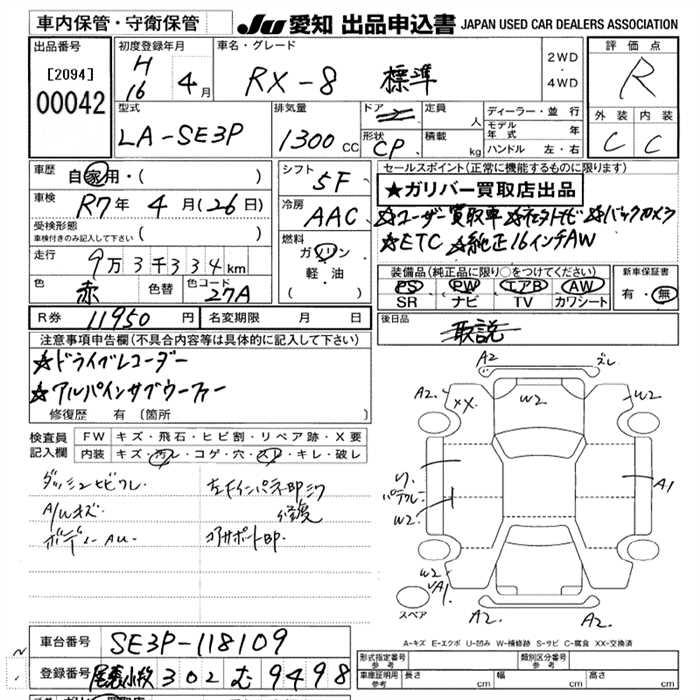 車内保管・守衛保管 JU 愛知 出品申込書 JAPAN USED CAR DEALERS ASSOCIATION
出品番号
[2094]
00042
初度登録年月 車名・グレード
H16 4月 RX-8 標準
2WD
・
4WD
型式 排気量 ドア 定員 人
LA-SE3P 1300 CC 形状 CP 積載 kg
ディーラー・並 行
モデル年式 年
ハンドル 左・右
評価点
R
外装 内装
C C
車歴 自家用・( )
車検 R7年 4月(26日)
受検形態
車検付きのみ記入して下さい ( )
走行 9万3千334km
色 赤 色替 色コード 27A
シフト 5F
冷房 AAC
燃料 ガソリン
軽・油
( )
R券 11950 円 名変期限 月 日
セールスポイント(正常に機能するものに限ります)
★ガリバー買取店出品
☆ユーザー買取車 ☆社外ナビ ☆バックカメラ
☆ETC ☆純正16インチAW
装備品(純正品に限り○をつけてください)
PS PW エアB AW
SR ナビ TV カワシート
新車保証書
有・無
後日品
取説
注意事項申告欄(不具合内容等は具体的に記入して下さい)
☆ドライブレコーダー
☆アルパインサブウーファー
修復歴 有 〔箇所 〕
検査員記入欄
FW キズ・飛石・ヒビ割・リペア跡・X要
内装 キズ・汚レ・コゲ・穴・スレ・キレ・破レ
ダッシュヒビワレ 左フインパネ部シワ
A/Uキズ 修復
ボディーAU コアサポート部
A2 ズレ
A2. XX W2 W2
パテワレ
W2 A1
W2 A1
スペア A2 A2
A-キズ E-エクボ U-凹み W-補修跡 S-サビ C-腐食 XX-交換済
車台番号 SE3P-118109
登録番号 尾張小牧 302 む 9498
形式指定番号 参考 類別区分番号 参考
車庫証明用 参考 長さ cm 幅 cm 高さ cm